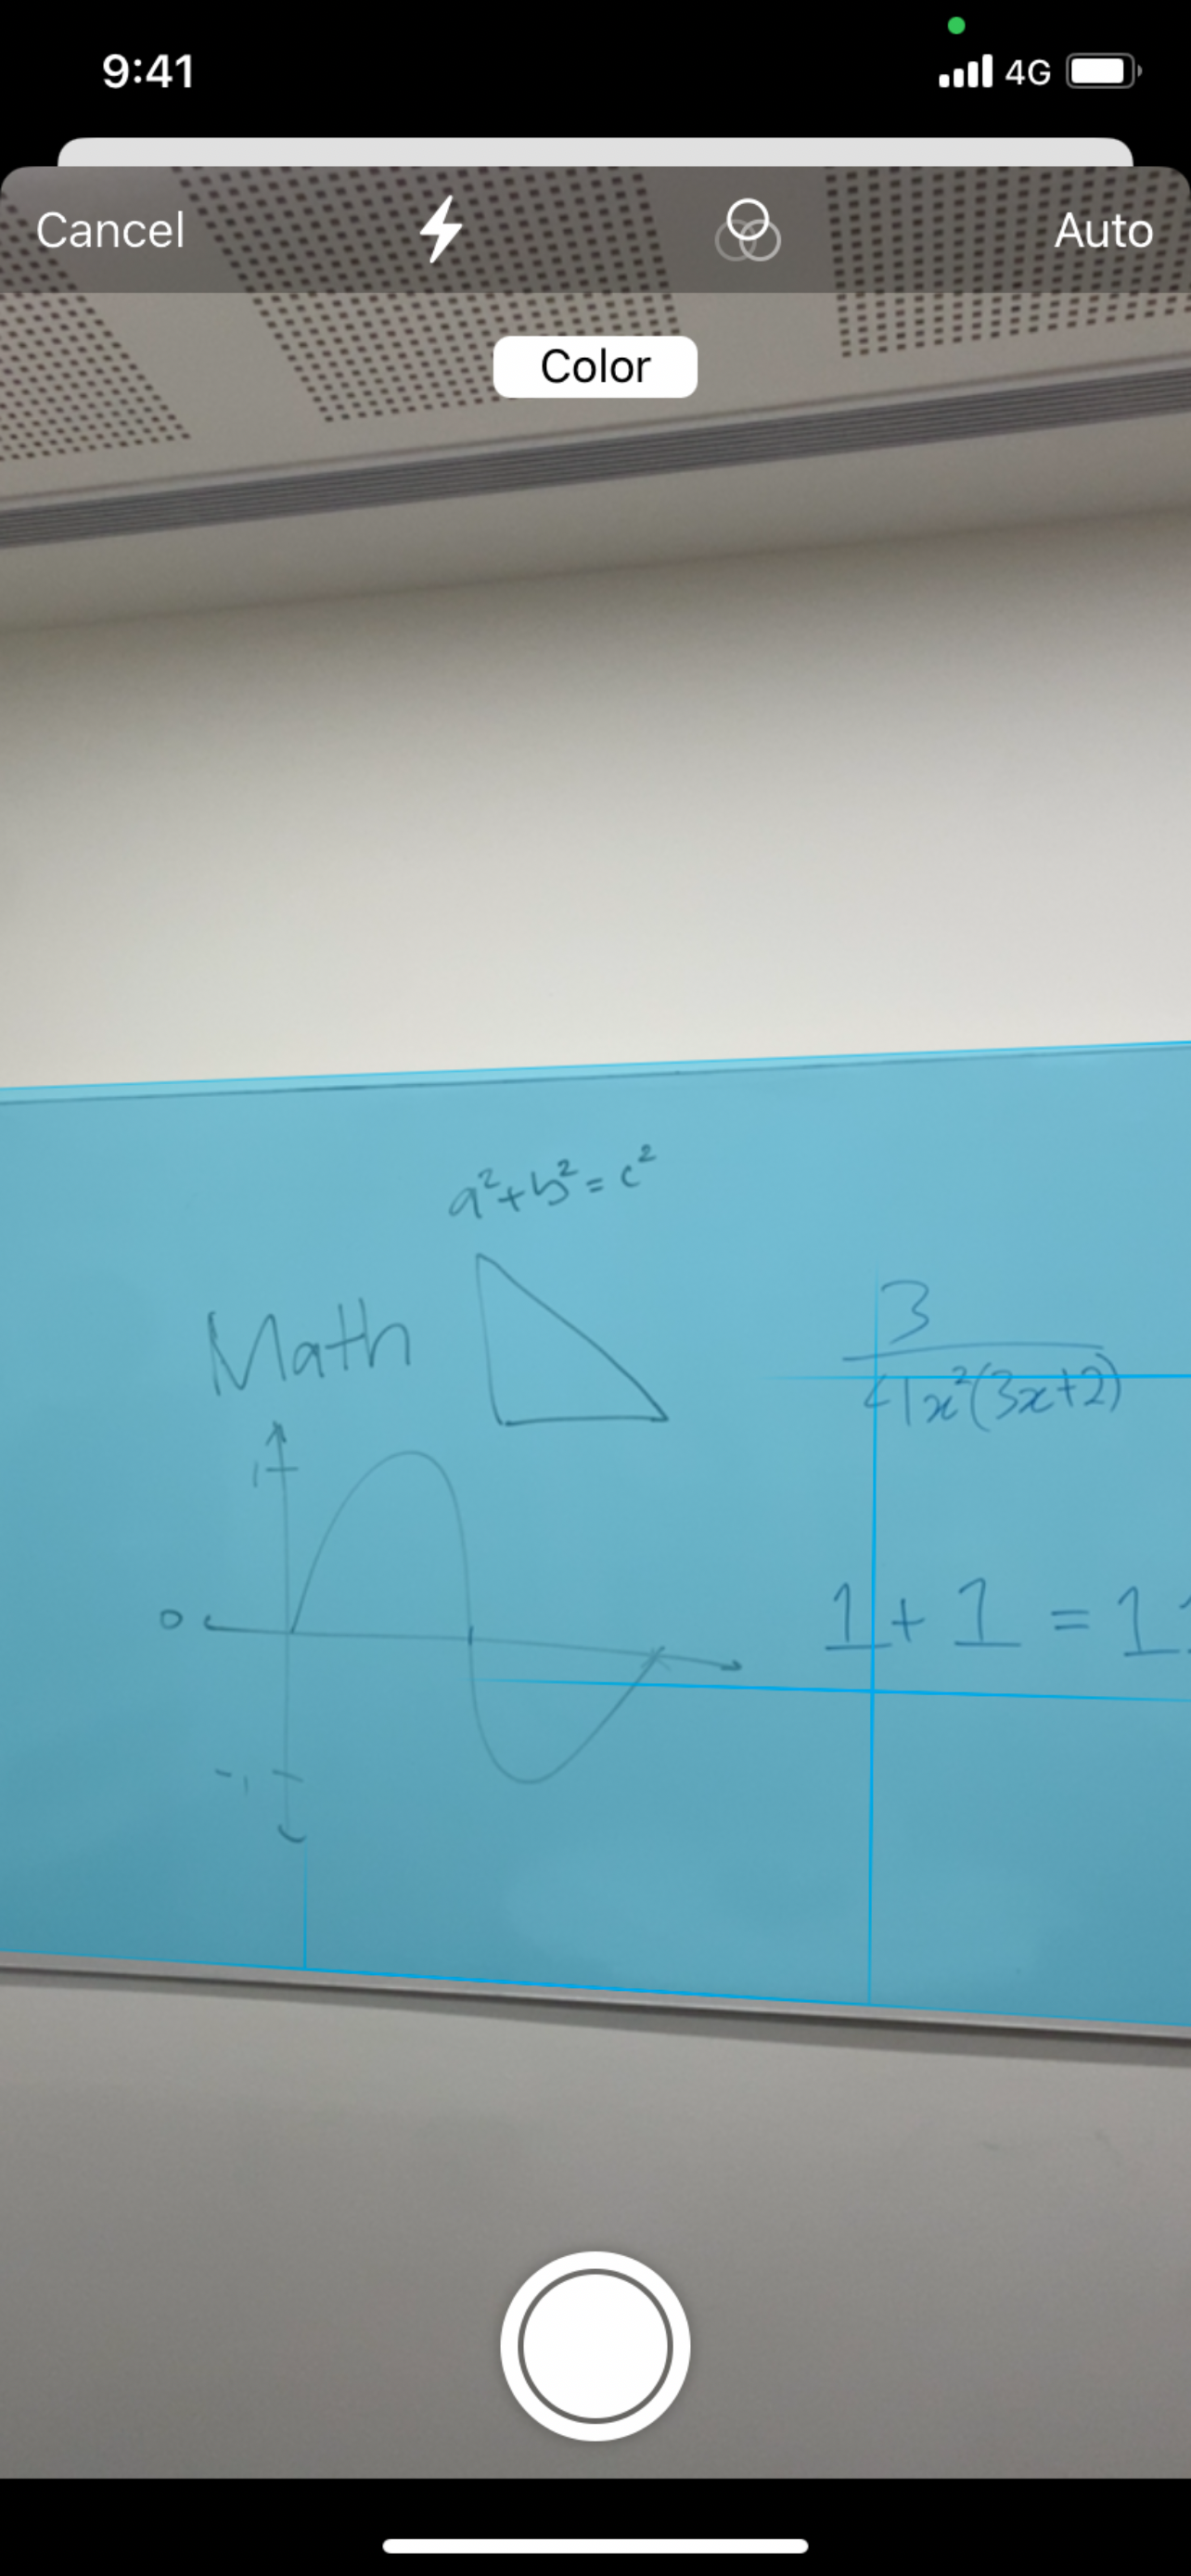 9:41 4G
Cancel Auto
Color
a²+b²=c²
Math
3
41x²(3x+2)
1
0
1+1=11
-1